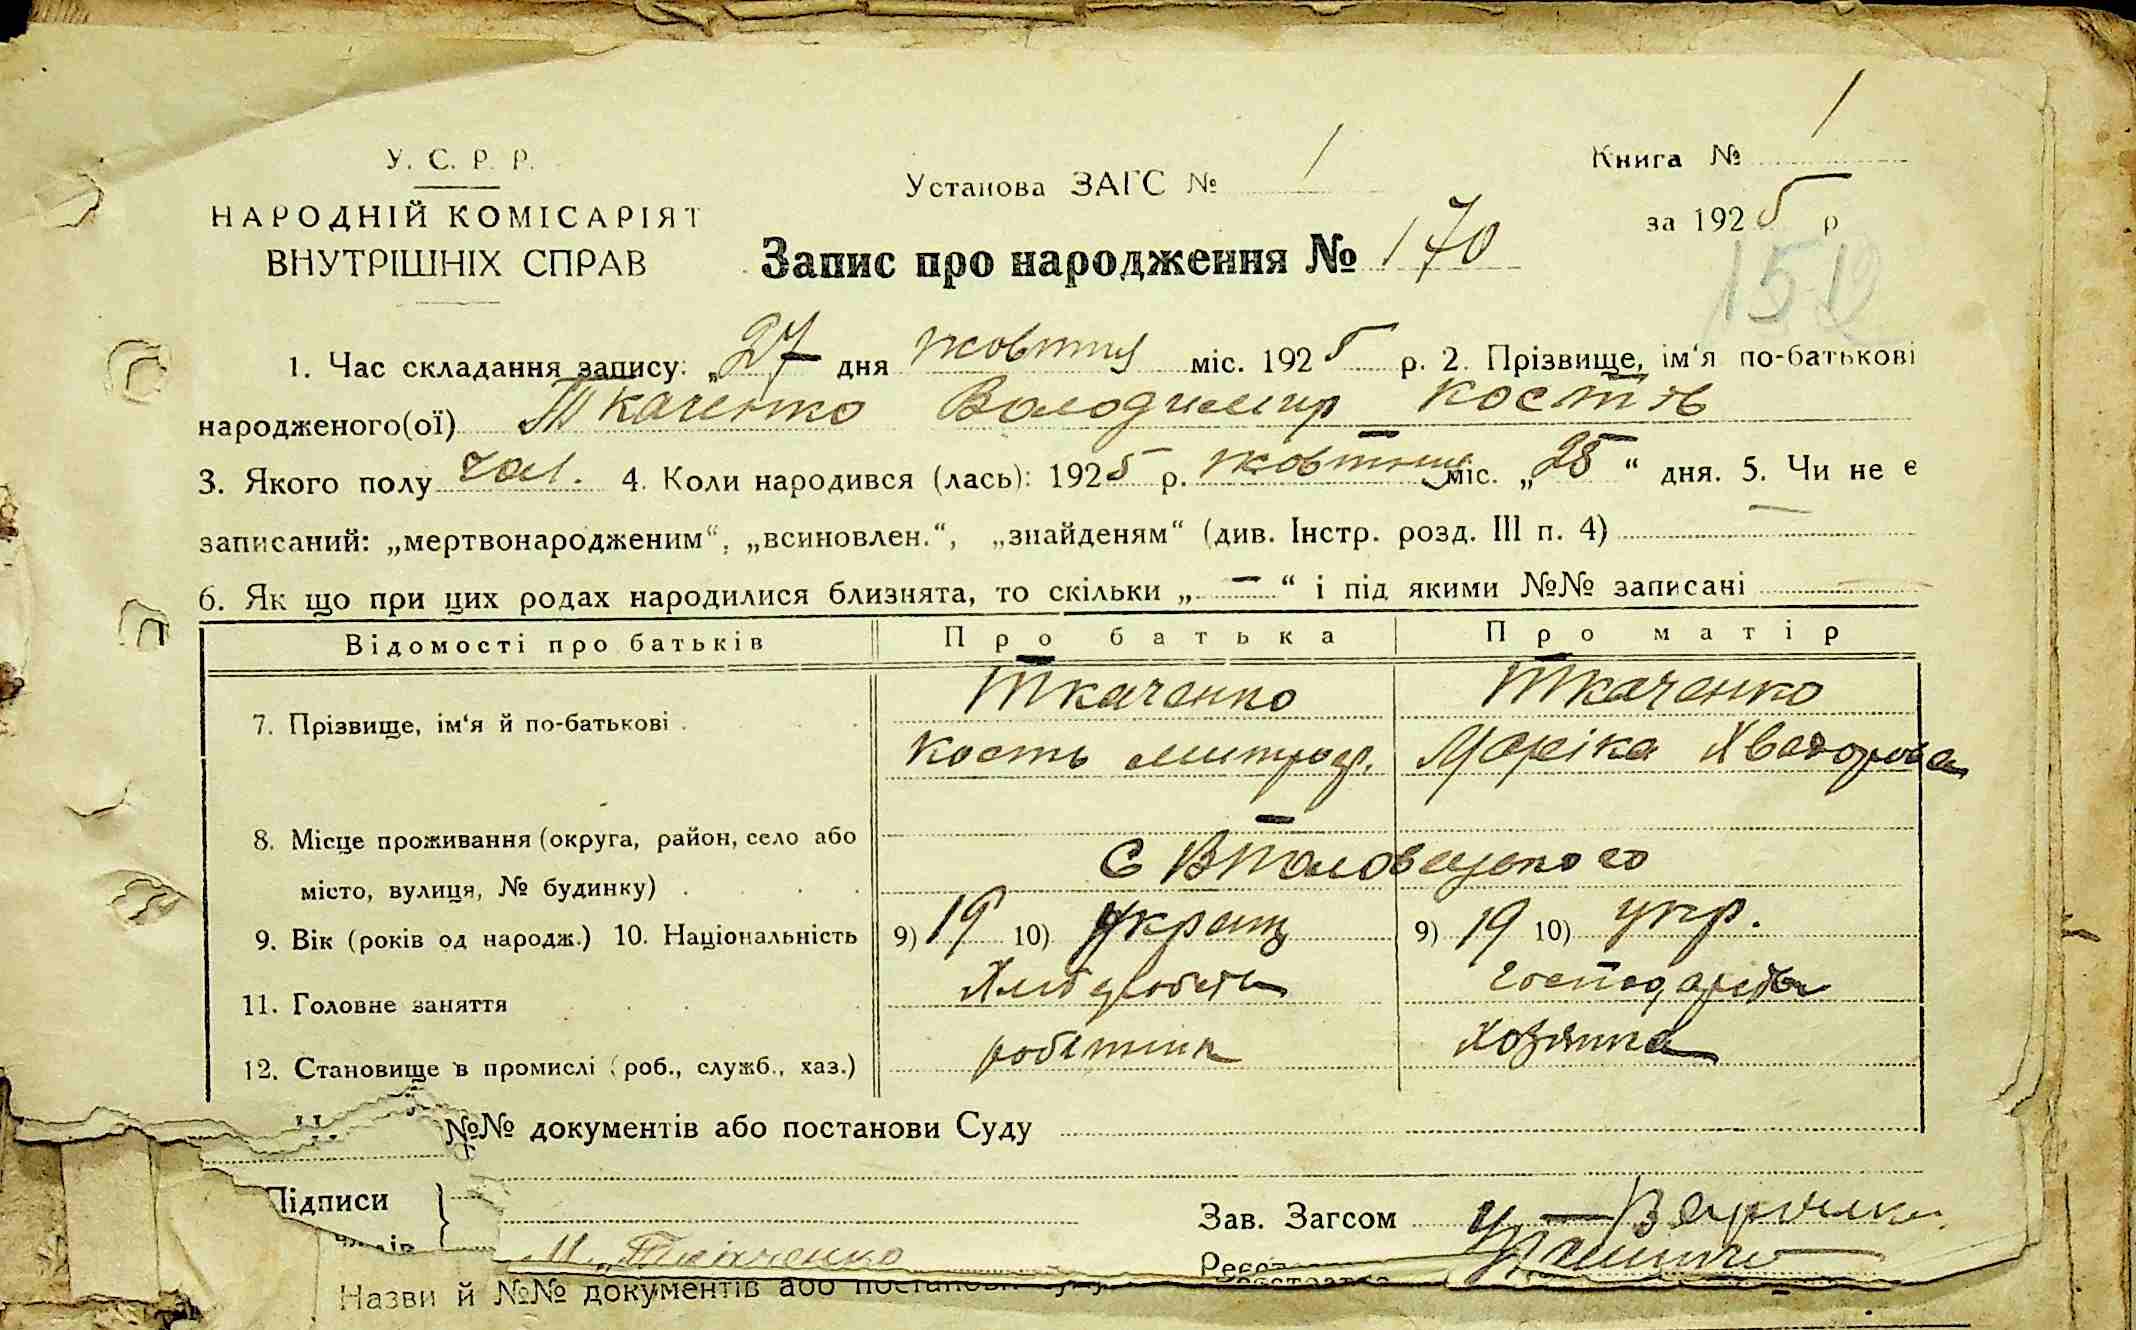 У. С. Р. Р.
НАРОДНІЙ КОМІСАРІЯТ
ВНУТРІШНІХ СПРАВ
Установа ЗАГС № 1
Книга № 1
за 1925 р
Запис про народження № 170
151
1. Час складання запису: „27 дня жовтня міс. 1925 р. 2. Прізвище, ім‘я по-батькові
народженого(ої) Ткаченко Володимир Костів
3. Якого полу чол. 4. Коли народився (лась): 1925 р. жовтня міс. „25“ дня. 5. Чи не є
записаний: „мертвонародженим“, „всиновлен.“, „знайденям“ (див. Інстр. розд. III п. 4) —
6. Як що при цих родах народилися близнята, то скільки „—“ і під якими №№ записані —
Відомості про батьків Про батька Про матір
7. Прізвище, ім‘я й по-батькові . Ткаченко Ткаченко
Кость митроф. Маріка Хведорова
8. Місце проживання (округа, район, село або
місто, вулиця, № будинку) . . . . С
9. Вік (років од народж.) 10. Національність 9) 19 10) Украец 9) 19 10) укр.
11. Головне заняття
12. Становище в промислі (роб., служб., хаз.) робітник хозяйка
№№ документів або постанови Суду
Підписи
Зав. Загсом
М. Ткаченко
Назви й №№ документів або постанови